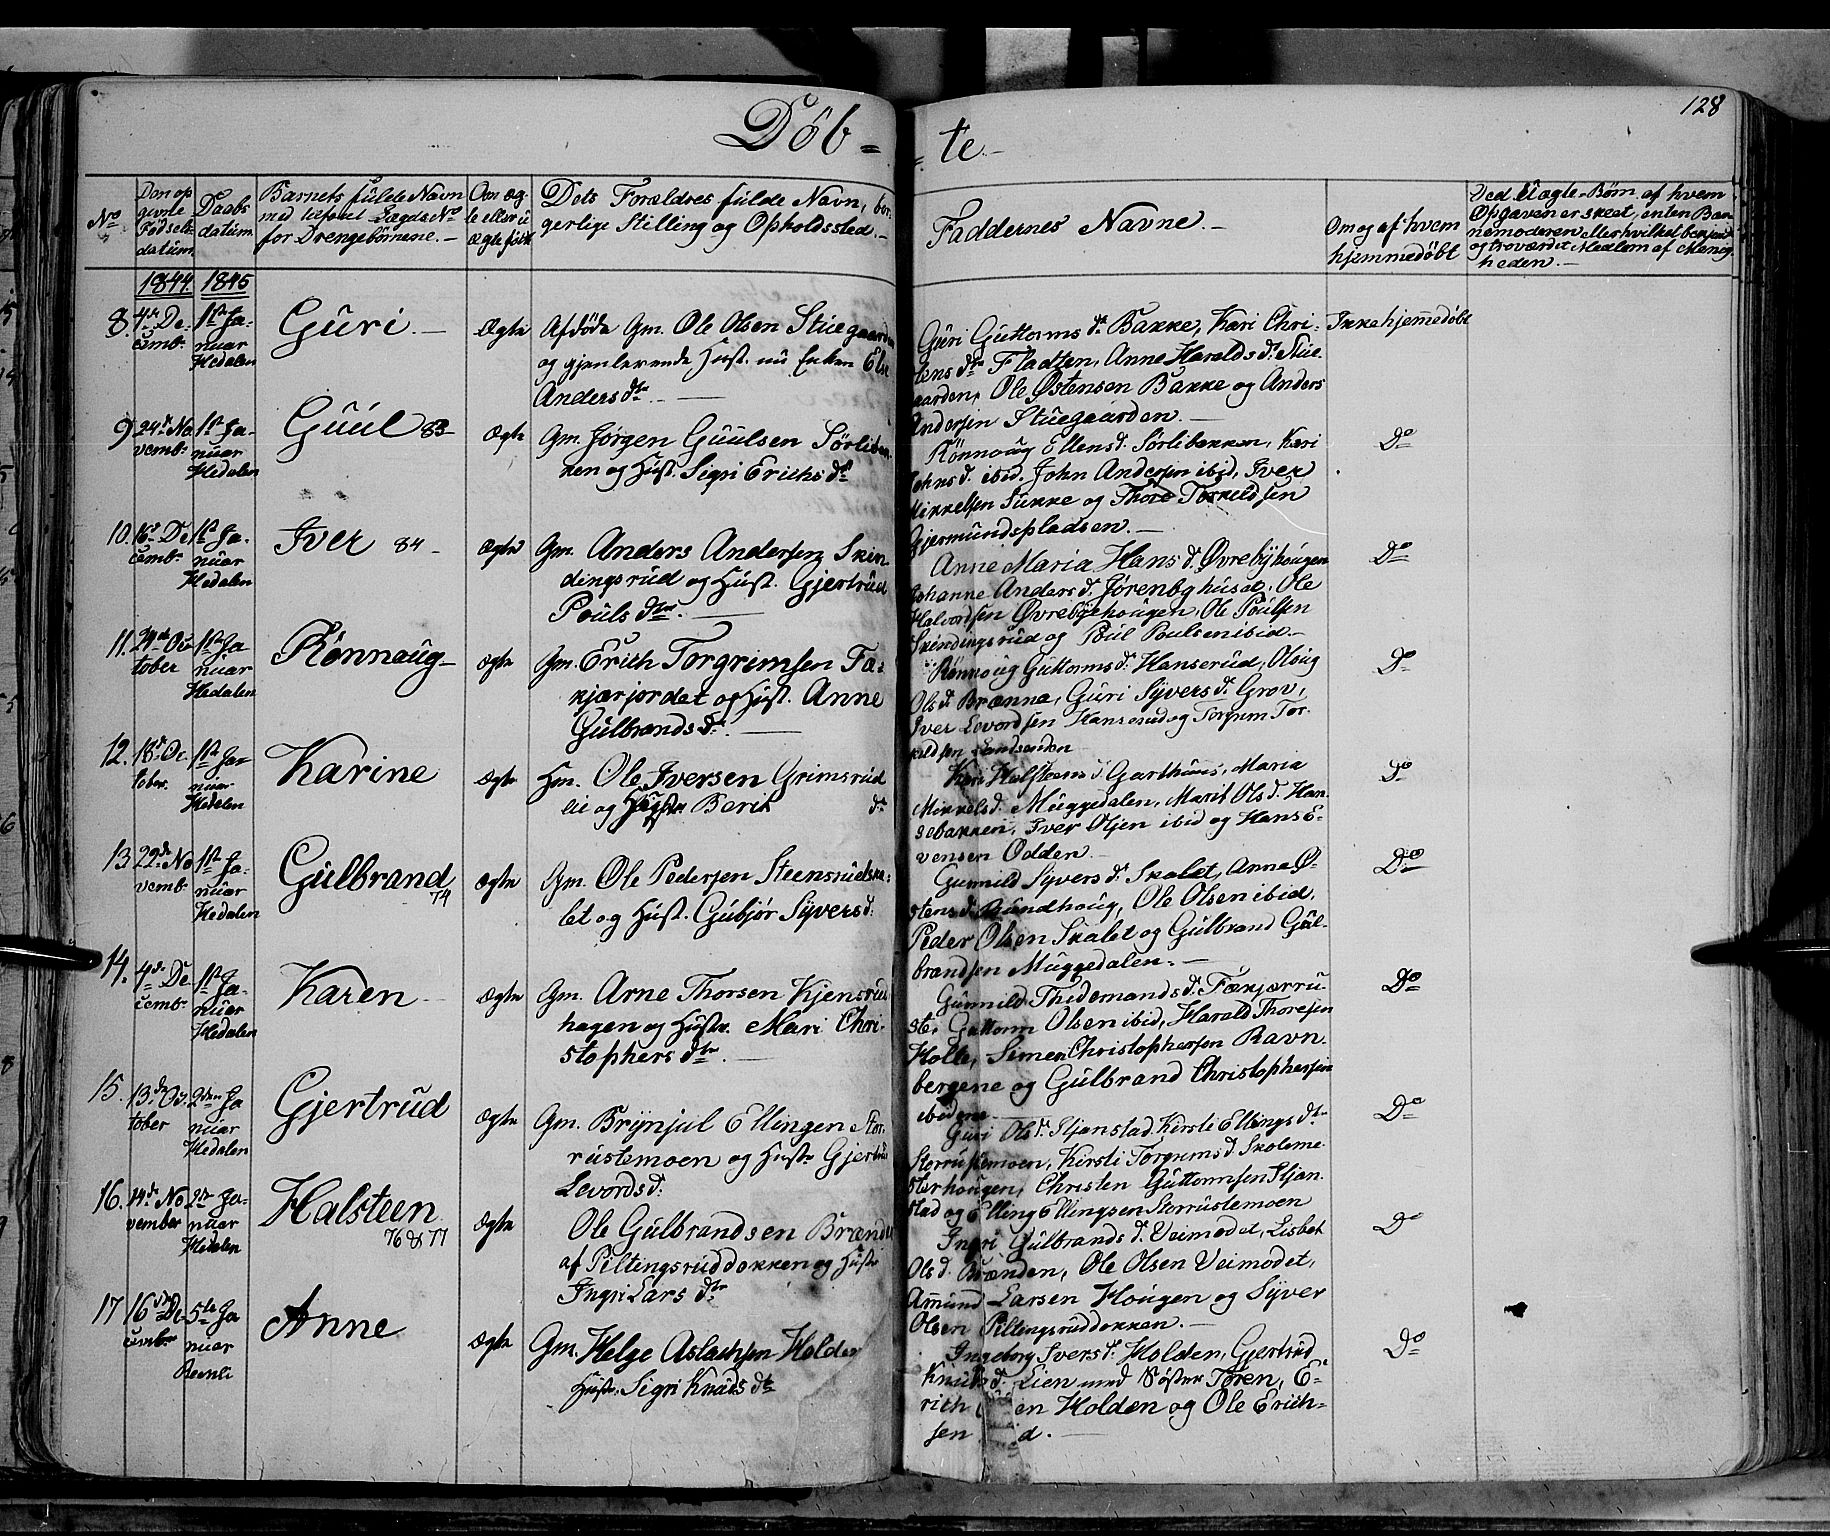 128
Döb = = te.
No
Den op
givne
Födsels
datum
Daabs
datum.
Barnets fulde Navn
med tilföiet Lægds No
for Drengebörnene.
Om æg-
te eller u
ægte födt
Dets Forældres fulde Navn, bor-
gerlige Stilling og Opholdssted.
Faddernes Navne.
Om og af hvem
hjemmedöbt
Ved Uægte-Börn af hvem
Opgaven er skeet, enten Bar-
nemoderen eller hvilket bekjendt
og troværdigt Medlem af Menig-
heden.
1844. 1845
8 4de De-
cembr
1ste Ja-
nuar
Hedalen
Guri
Ægte
Afdöde Gm. Ole Olsen Stuegaarden
og gjenlevende Hust. nu Enken Else
Anders dtr.
Guri Guttorms dtr Bakke, Kari Chri-
stens dtr Fladten, Anne Haralds dtr Stue-
gaarden, Ole Östensen Bakke og Anders
Andersen Stuegaarden.
Ikke hjemmedöbt
9 24de No
vembr
1ste Ja-
nuar
Hedalen
Guul 83
Ægte
Gm. Jörgen Guulsen Sörlibak-
ken og Hust. Sigri Erichs dtr
Rönnoug Ellens d. Sörlibakken, Kari
Johns d. ibid, John Andersen ibid, Iver
Mikkelsen Sukke og Thore Torkildsen
Gjermundspladsen.
Do
10. 16de De
cembr
1ste Ja-
nuar
Hedalen
Iver 84
Ægte
Gm. Anders Andersen Skin
dingsrud og Hust. Gjertrud
Pouls dtr.
Anne Maria Hans d. Övrebyhougen
Johanne Anders d. Jörenbghuset, Ole
Halvordsen Övrebyehougen, Ole Poulsen
Skindingsrud og Poul Poulsen ibid
Do
11. 24de Oc
tober
1ste Ja
nuar
Hedalen
Rönnoug
Ægte
Gm. Erich Torgrimsen Fæ-
kjærjordet og Hust. Anne
Gulbrands dr.
Rönnoug Guttorms d. Hanserud, Oloug
Ols d. Brænna, Guri Syvers d. Grov,
Iver Levordsen Hanserud og Torgrim Tor-
kildsen Landsenden
Do
12. 18de Oc-
tober.
1ste Ja-
nuar
Hedalen
Karine
Ægte
Hm. Ole Iversen Grimsrud
lie og Hustr Berit dr
Kari Halsteens d. Garthuus, Maria
Mikkels d. Muggedalen, Marit Ols d. Han-
sebakken, Iver Olsen ibid og Hans E-
vensen Odden
Do
13 22de No
vembr
1ste Ja-
nuar
Hedalen
Gulbrand
74
Ægte
Gm. Ole Pedersen Steensrudska-
let og Hust. Gubjör Syvers d.
Gunnild Syvers d. Skalet, Anne Ö-
stens d. Bundhoug, Ole Olsen ibid,
Peder Olsen Skalet og Gulbrand Gul-
brandsen Muggedalen.
Do
14. 4de De
cembr
1ste Ja-
nuar
Hedalen
Karen
Ægte
Gm. Arne Thorsen Kjensrud
hagen og Hustr. Mari Chri-
stophers dtr.
Gunnild Thidemands d. Fækjærru-
ste, Guttorm Olsen ibid, Harald Thoresen
Holle, Simen Christophersen Ravn-
bergene og Gulbrand Christophersen
ibidem
Do
15. 13de Oc-
tober
2den Ja
nuar
Hedalen
Gjertrud
Ægte
Gm. Brynjul Ellingen Stor-
rustemoen og Hustr Gjertrud
Levords d.
Guri Ols d. Stjanstad, Kirsti Ellings dtr
Storrustemoen, Kirsti Torgrims d. Skoleme-
sterhougen, Christen Guttormsen Stjan-
stad og Elling Ellingsen Storrustemoen
Do
16. 14de No
vember
2den Ja-
nuar
Hedalen
Halsteen
76 & 77
Ægte
Ole Gulbrandsen Brænden
af Piltingsruddokken og Hustr
Ingri Lars dtr
Ingri Gulbrands d. Veimodet, Lisbet
Ols d. Brænden, Ole Olsen Veimodet,
Amund Larsen Hougen og Syver
Olsen Piltingsruddokken.
Do
17 16de De
cember
5te Ja
nuar
Reinli
Anne
Ægte
Gm. Helge Aslachsen Holden
Hustr. Sigri Knuds dtr
Ingeborg Ivers d. Holden, Gjertrud
Knuds d. Lien med Söster Toren, E-
rich en Holden og Ole Erich-
sen d.
Do